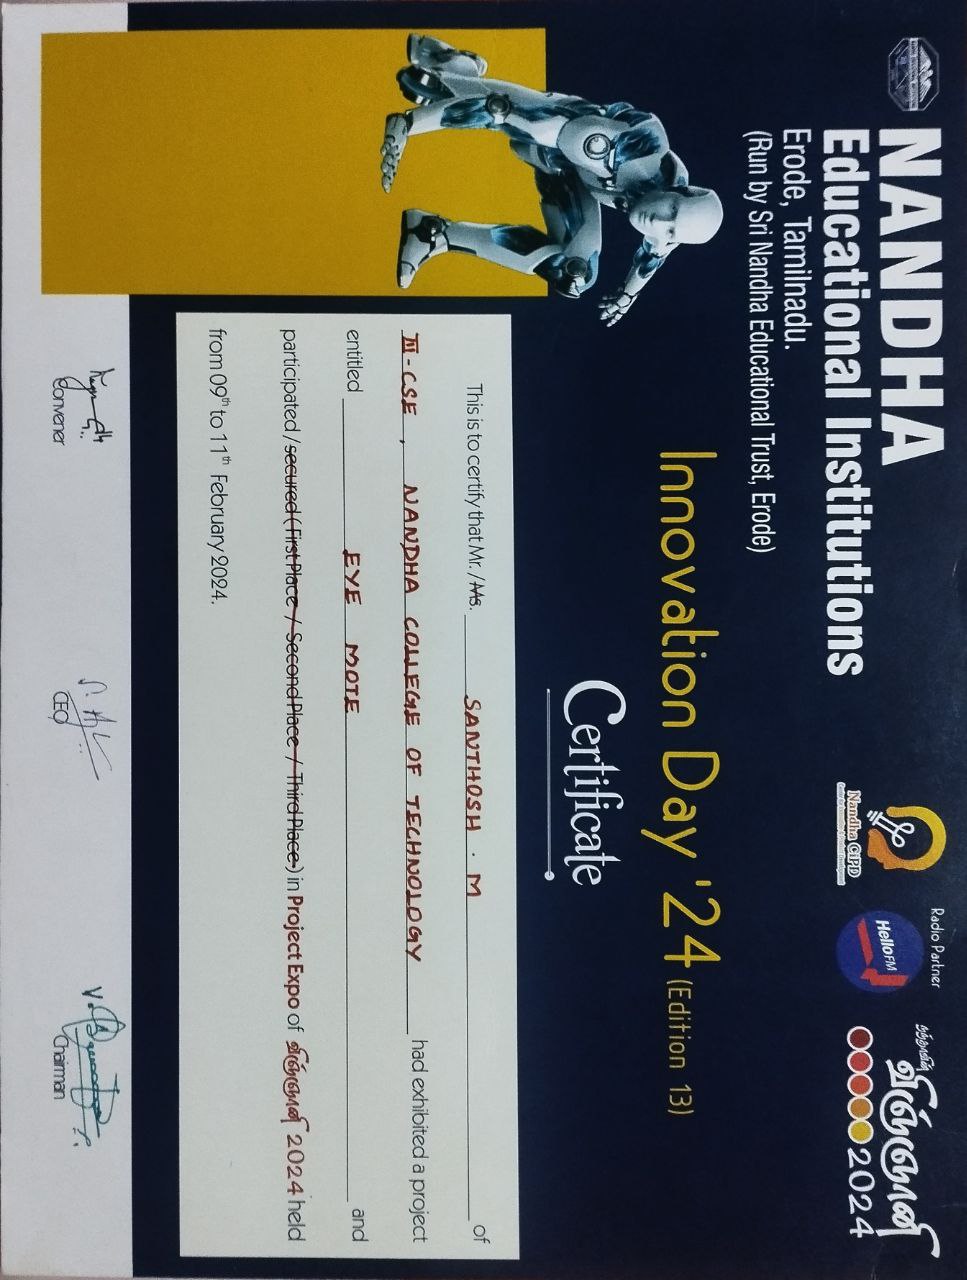 NANDHA
Educational Institutions
Erode, Tamilnadu.
(Run by Sri Nandha Educational Trust, Erode)
Nandha CiPD
Radio Partner
Hello FM
விஞ்ஞானி
2024
Innovation Day '24 (Edition 13)
Certificate
This is to certify that Mr. / Ms. SANTHOSH . M of
III - CSE , NANDHA COLLEGE OF TECHNOLOGY had exhibited a project
entitled EYE MOTE and
participated / secured ( First Place / Second Place / Third Place ) in Project Expo of விஞ்ஞானி 2024 held
from 09th to 11th February 2024.
Convener
CEO
Chairman